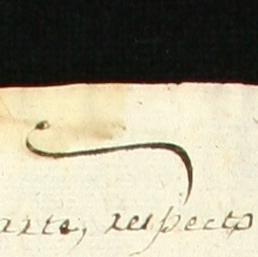 arte, respecto